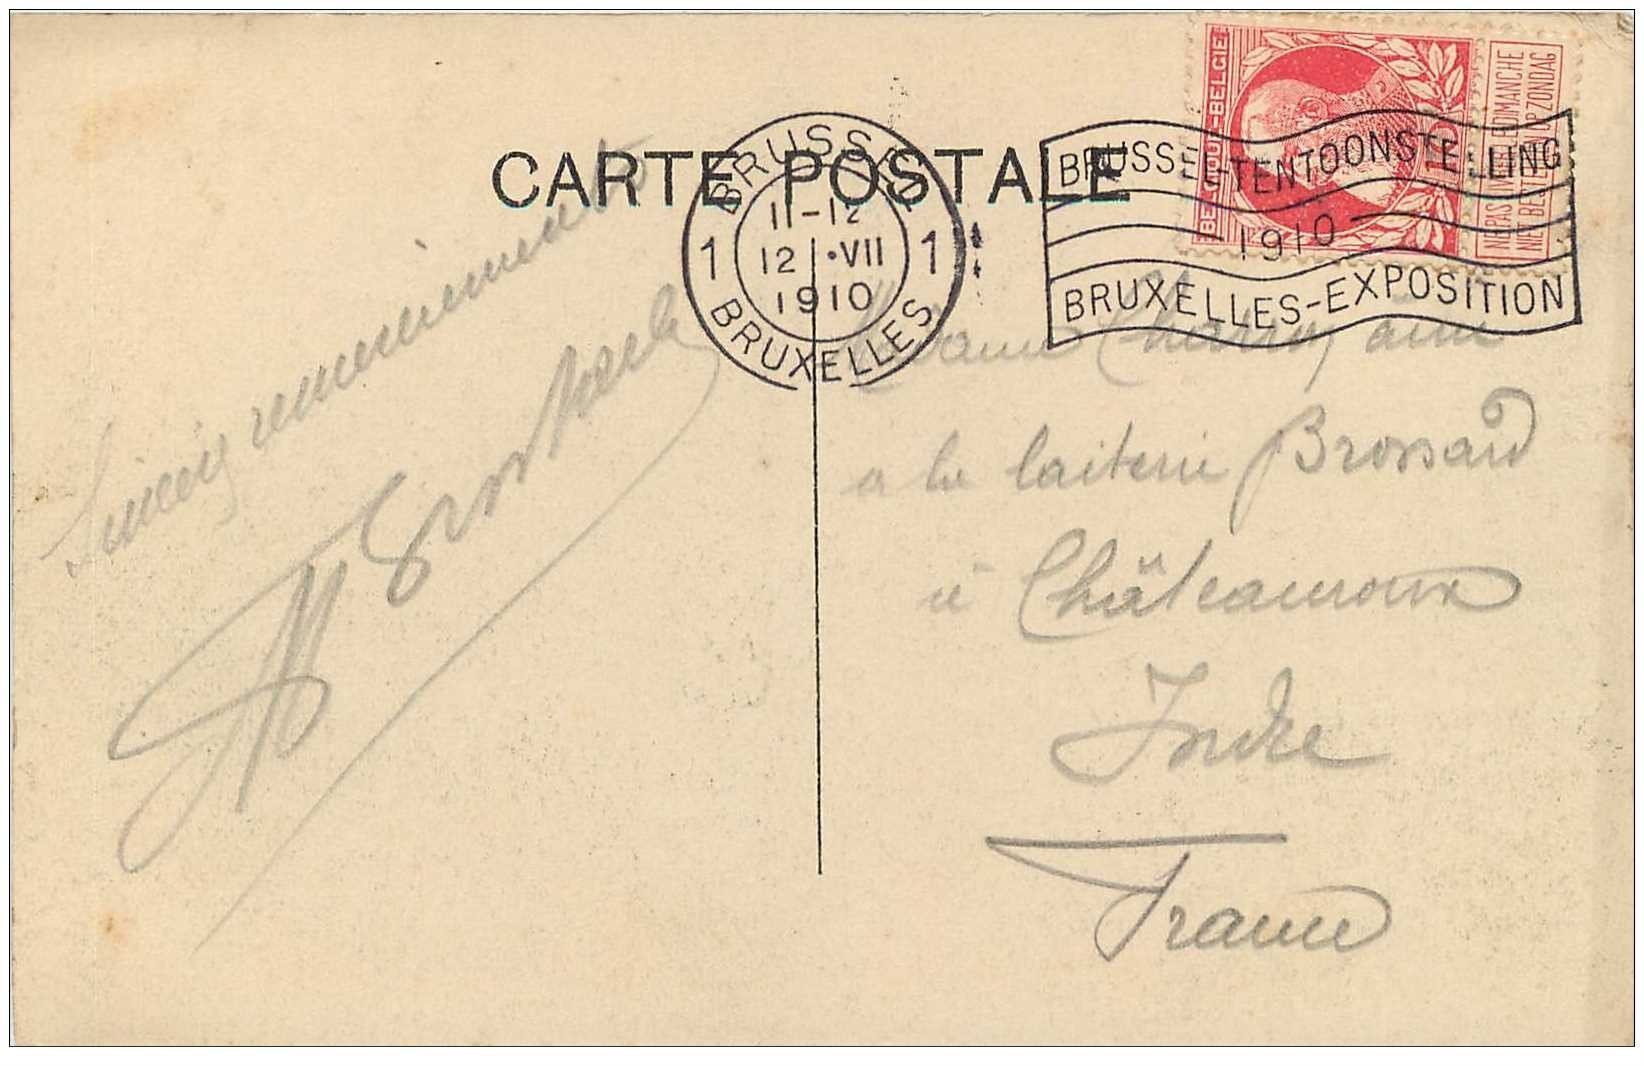 CARTE POSTALE
BRUSSEL
11-12
1 12 VII 1
1910
BRUXELLES
BRUSSEL-TENTOONSTELLING
1910
BRUXELLES-EXPOSITION
BELGIQUE-BELGIË
NE PAS LIVRER LE DIMANCHE
NIET BESTELLEN OP ZONDAG
Madame aîné
a la laiterie Brossard
à Châteauroux
Indre
France